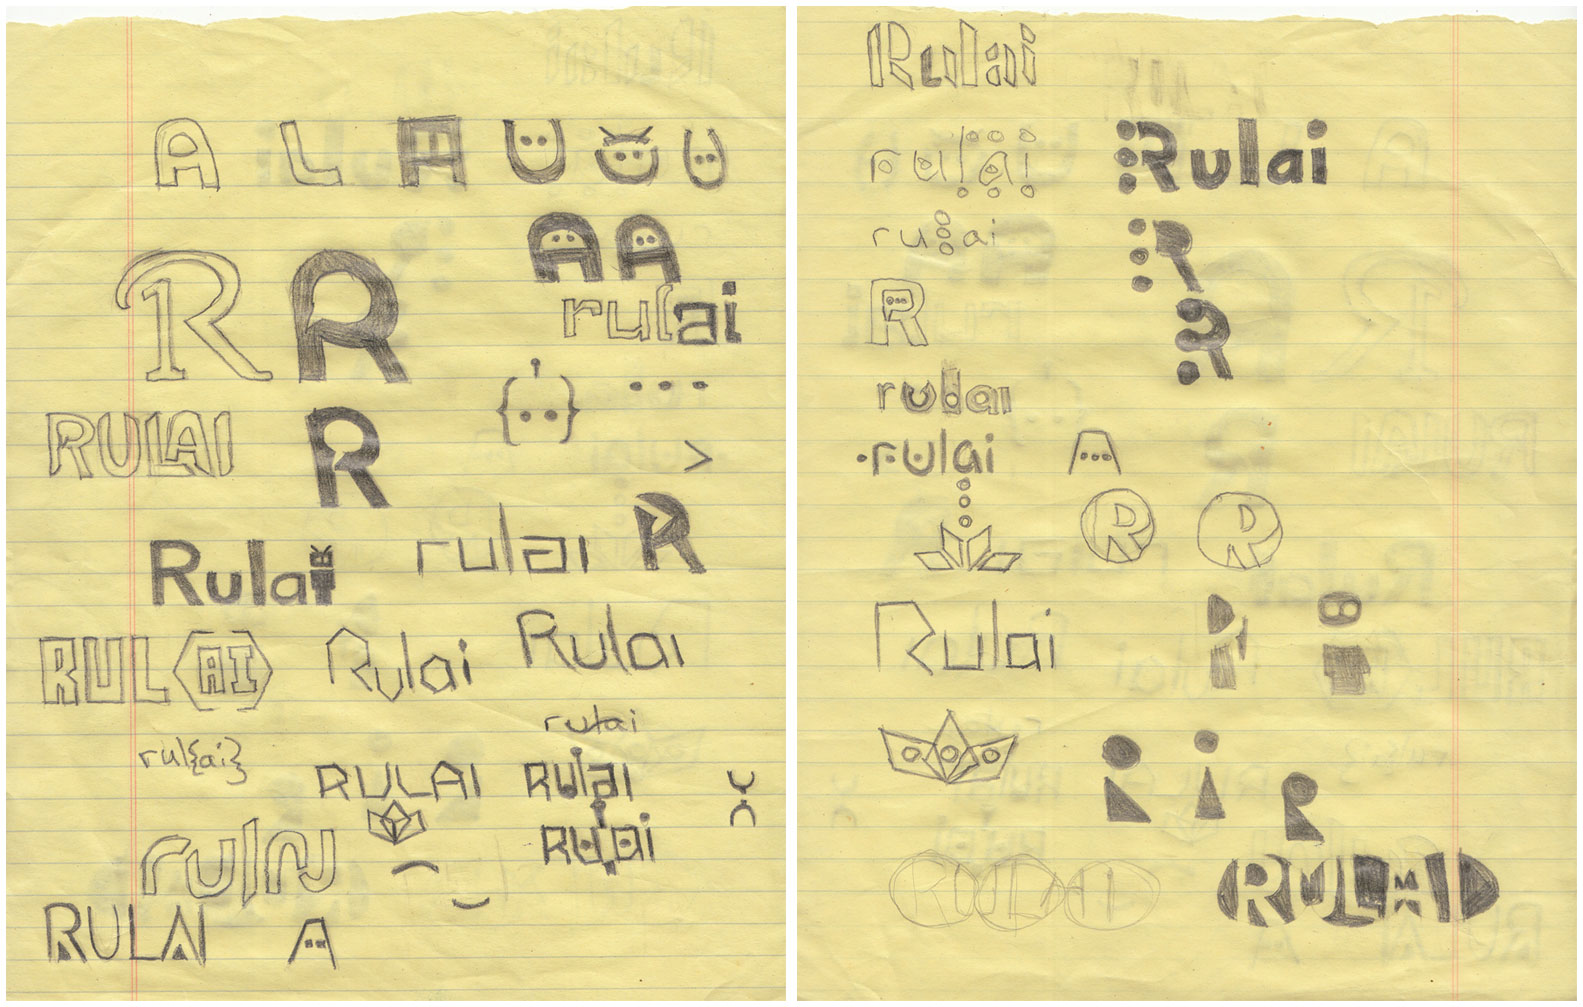 A L A U U U
A A
R R
rulai
{..} ...
RULAI R
>
Rulai rulai R
RUL AI Rulai Rulai
rulai
rul{ai}
RULAI Rulai
rulai Rulai
RULAI A
Rulai
rulai Rulai
ru ai R
R R
rulai
rulai A
R R
Rulai R i
R i R
RULAI RULAI